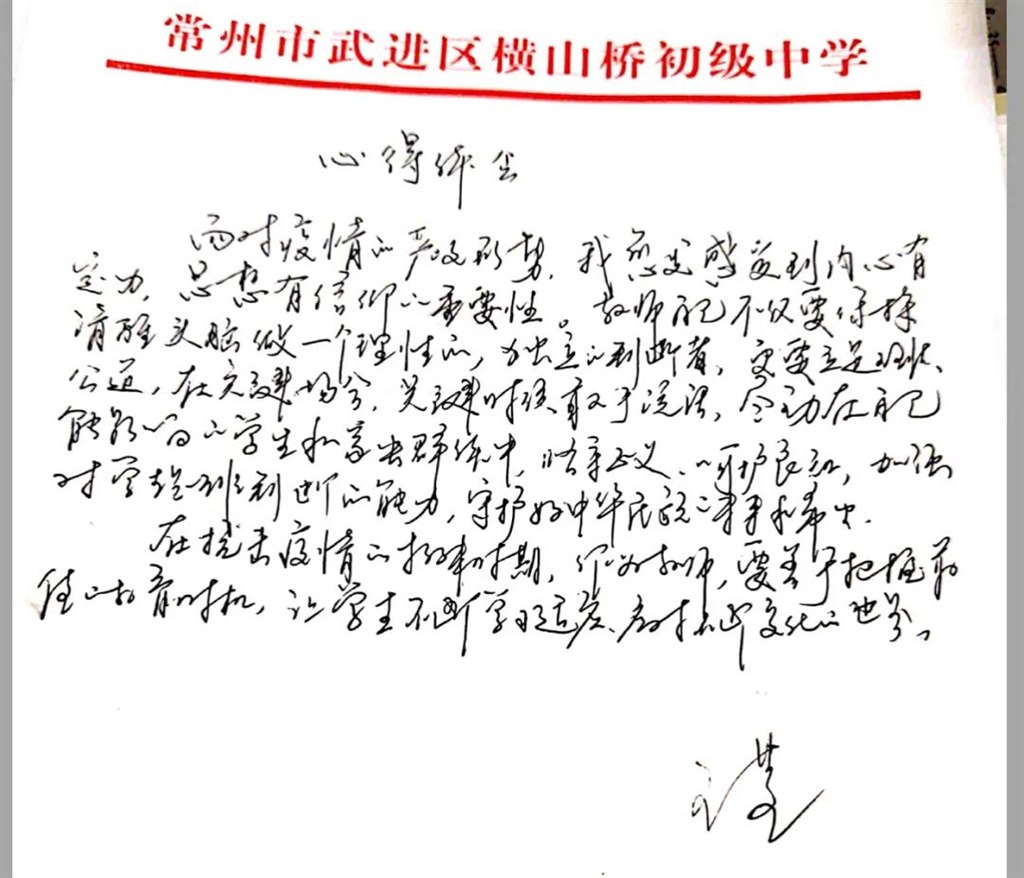 常州市武进区横山桥初级中学
心得体会
面对疫情的严峻形势，我愈发感受到内心有
定力，思想有信仰的重要性。教师自己不仅要保持
清醒头脑做一个理性的，独立的判断者，更要立足现状、
公道，在关键场合，关键时候、敢于说话，尽力在自己
能影响的学生和家长群体中，恪守正义、呵护良知，加强
对学生判断的能力，守护好中华民族未来和希望。
在抗击疫情的特殊时期，作为教师，要善于把握最
佳的教育时机，让学生不断学习适应、应对不断变化的世界。